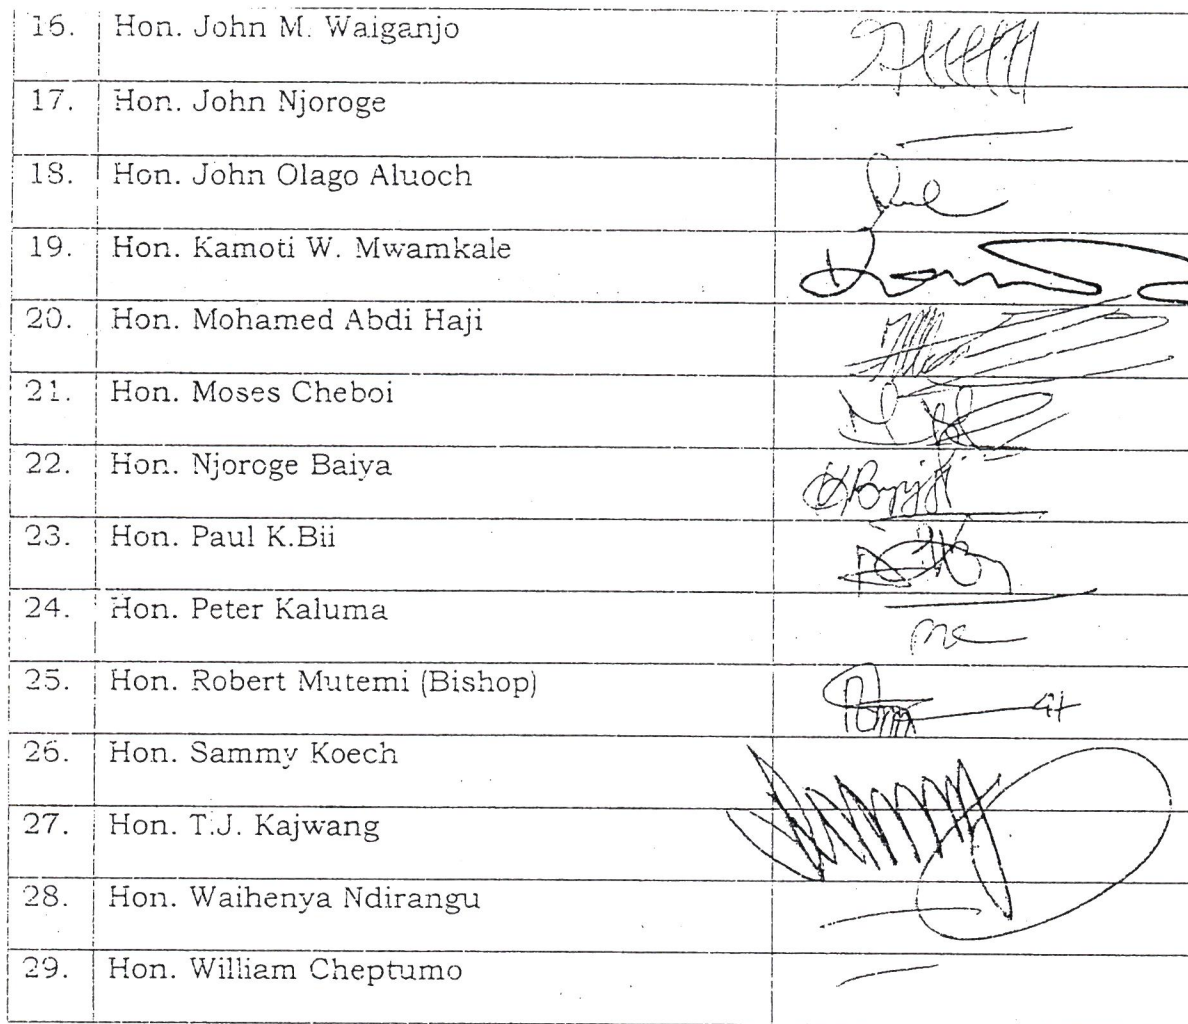 16. Hon. John M. Waiganjo
17. Hon. John Njoroge
18. Hon. John Olago Aluoch
19. Hon. Kamoti W. Mwamkale
20. Hon. Mohamed Abdi Haji
21. Hon. Moses Cheboi
22. Hon. Njoroge Baiya
23. Hon. Paul K.Bii
24. Hon. Peter Kaluma
25. Hon. Robert Mutemi (Bishop)
26. Hon. Sammy Koech
27. Hon. T.J. Kajwang
28. Hon. Waihenya Ndirangu
29. Hon. William Cheptumo